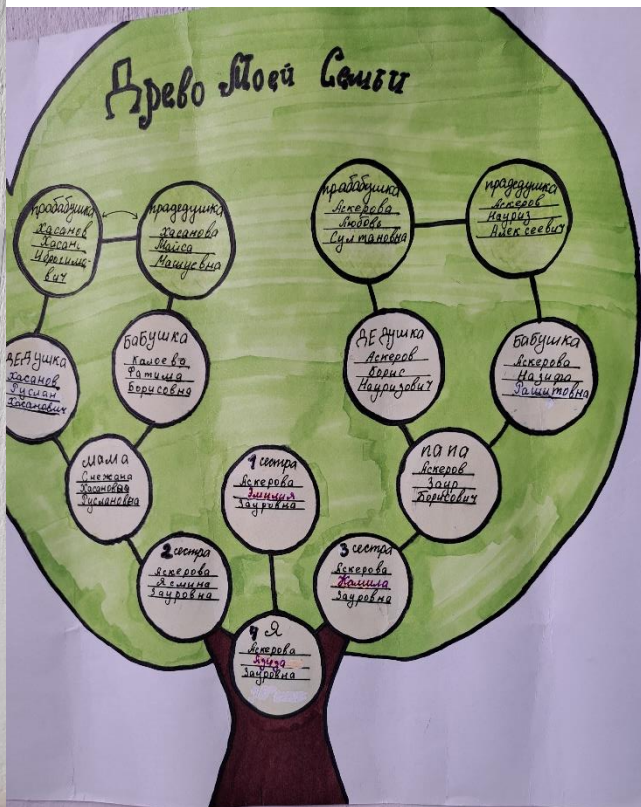 Древо Моей Семьи
прабабушка
Хасанов
Хасан
Ибрагимо-
вич
прадедушка
Хасанова
Майса
Машуевна
прабабушка
Аскерова
Любовь
Султановна
прадедушка
Аскеров
Науриз
Алексеевич
ДЕДушка
Хасанов
Руслан
Хасанович
бабушка
Калоева
Фатима
Борисовна
ДЕДушка
Аскеров
Борис
Наурузович
бабушка
Аскерова
Назифа
Рашитовна
мама
Снежана
Хасановна
Руслановна
1 сестра
Аскерова
Эмилия
Зауровна
папа
Аскеров
Заур
Борисович
2 сестра
Аскерова
Ясмина
Зауровна
3 сестра
Аскерова
Камила
Зауровна
4 Я
Аскерова
Зауровна